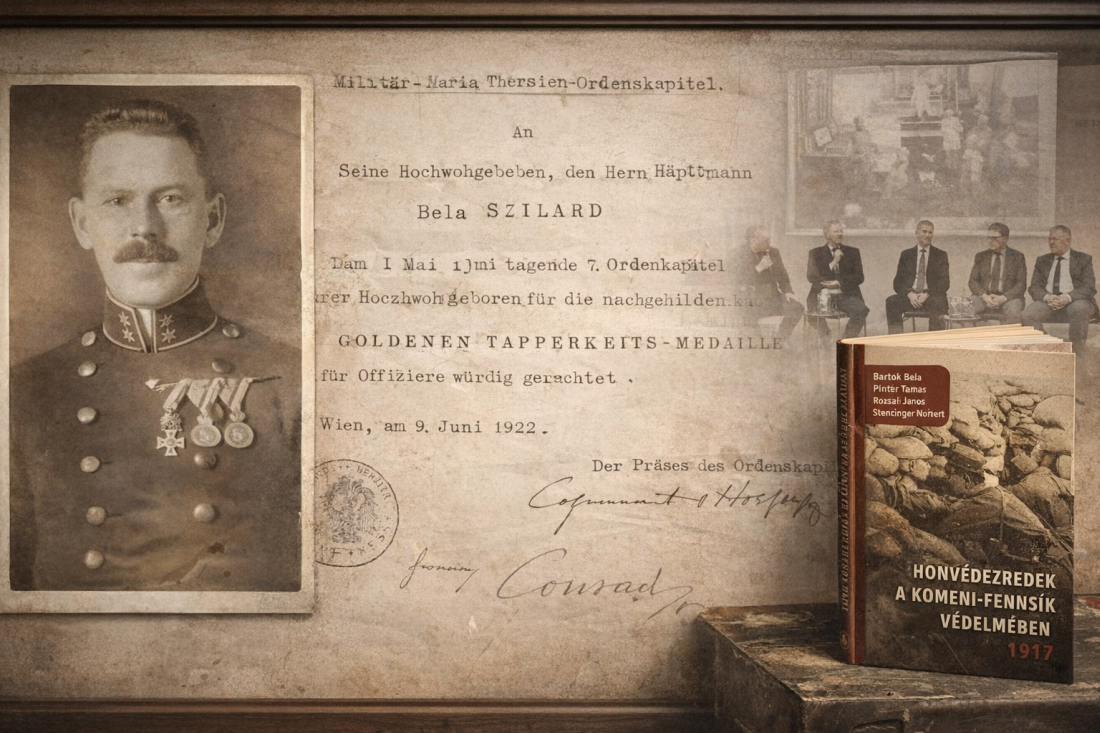 Militär-Maria Thersien-Ordenskapitel.
An
Seine Hochwohgebeben, den Hern Häpttmann
Bela SZILARD
Dam I Mai 1)mi tagende 7. Ordenkapitel
rer Hoczhwohgeboren für die nachgehilden
GOLDENEN TAPPERKEITS-MEDAILLE
für Offiziere würdig gerachtet .
Wien, am 9. Juni 1922.
Der Präses des Ordenskapi
Conrad
Bartok Bela
Pinter Tamas
Rozsafi Janos
Stencinger Norbert
HONVÉDEZREDEK
A KOMENI-FENNSÍK
VÉDELMÉBEN
1917